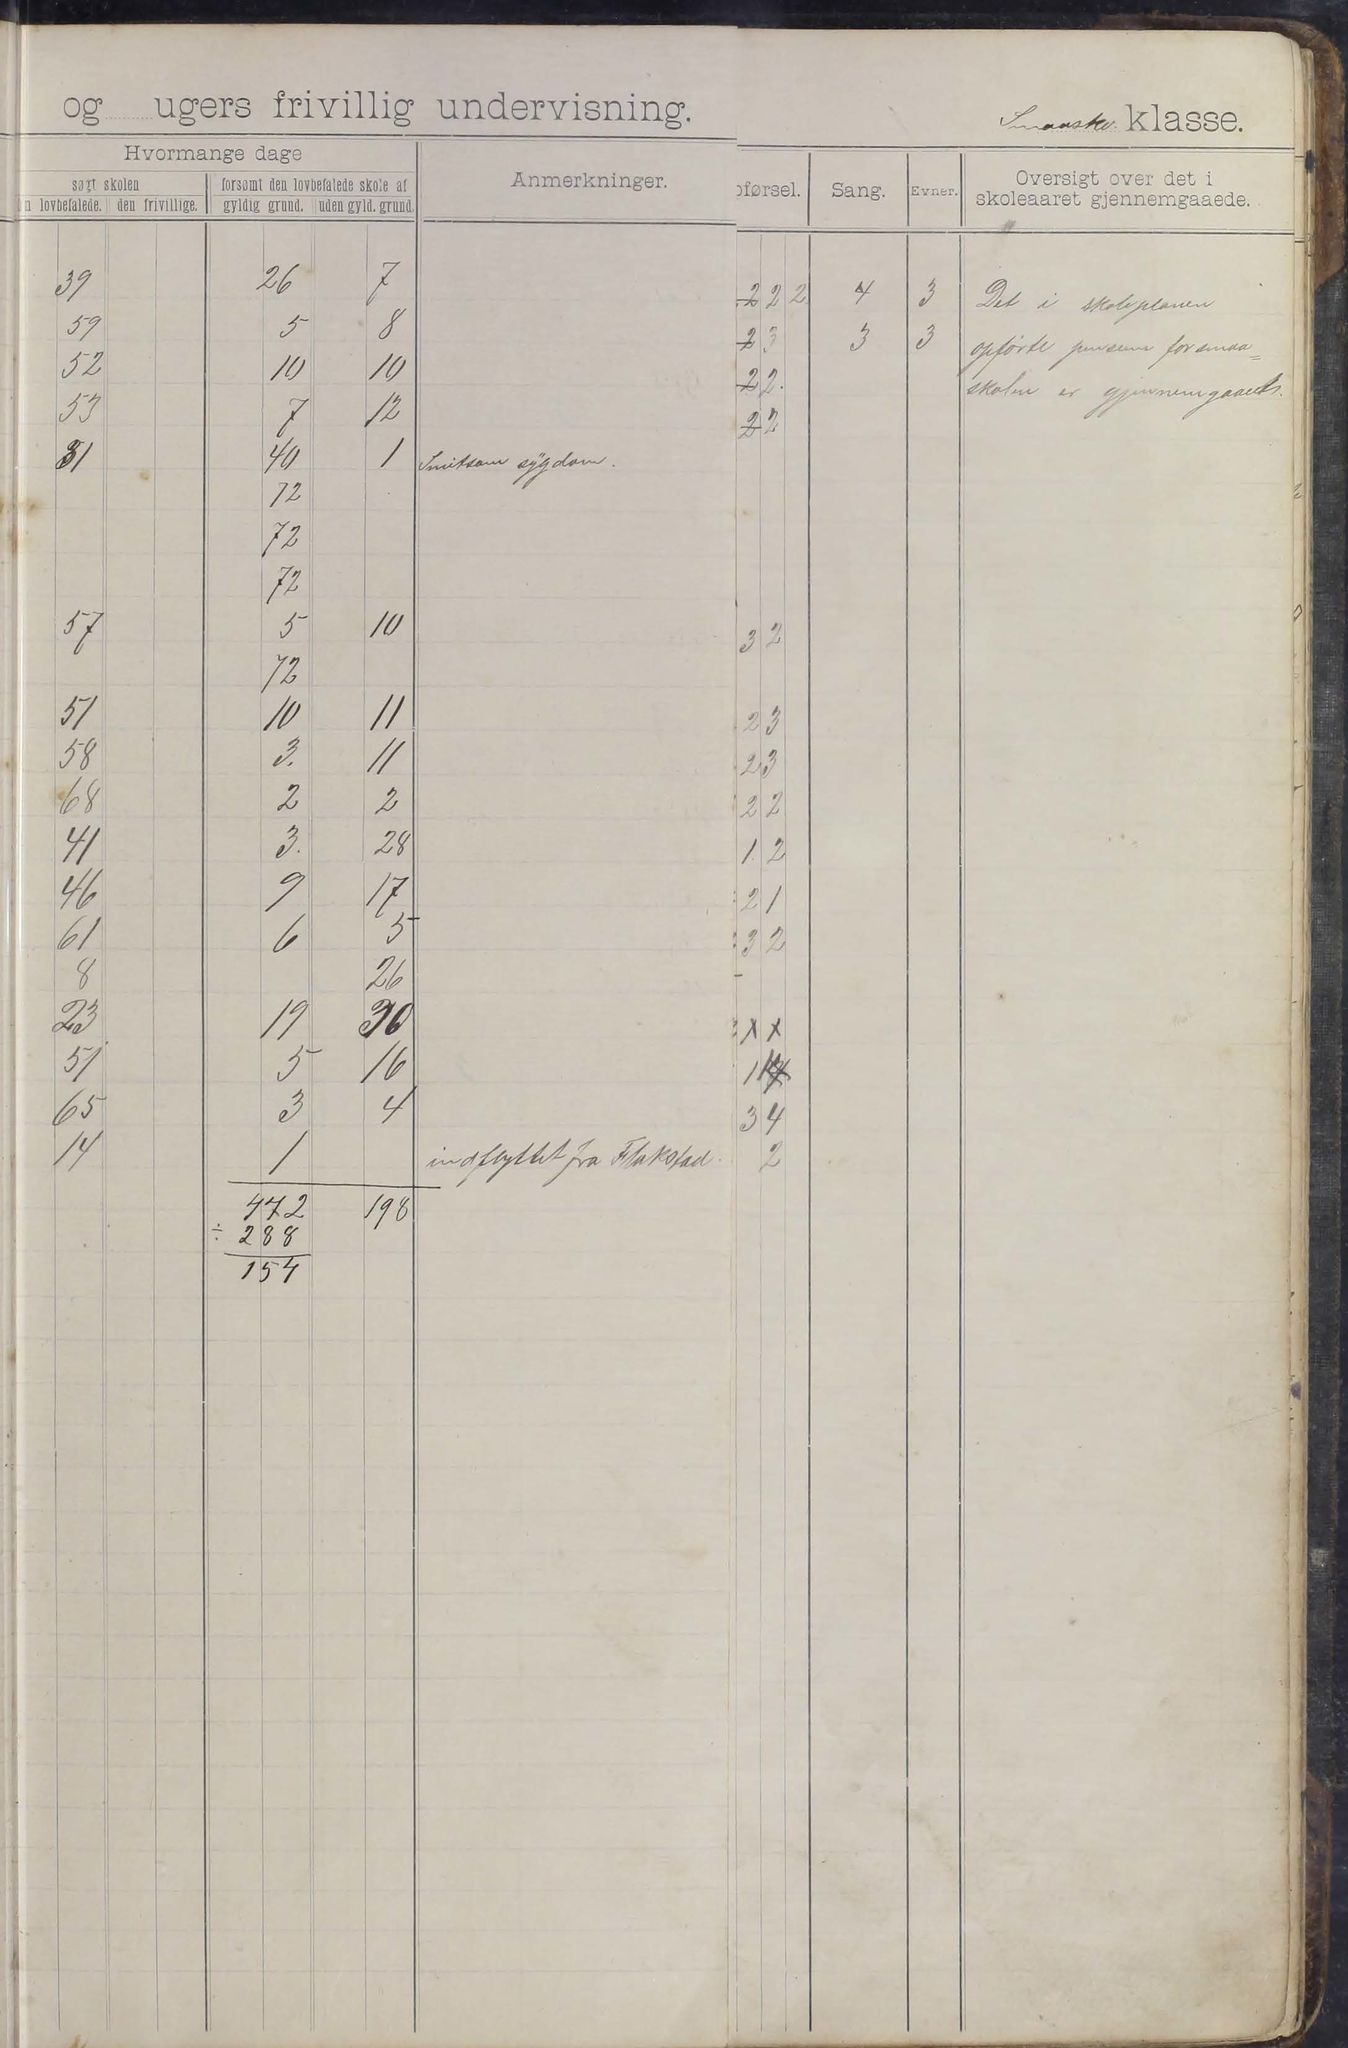 og ugers frivillig undervisning.
klasse.
Hvormange dage
søgt skolen
forsømt den lovbefalede skole af
n lovbefalede. den frivillige. gyldig grund. uden gyld. grund.
Anmerkninger.
pførsel. Sang. Evner.
Oversigt over det i
skoleaaret gjennemgaaede.
39 26 7
2 2 2 4 3 Det i skoleplanen
59 5 8
2 3 3 3 opførte pensum for smaa=
52 10 10
2 2. skolen er gjennemgaaet.
53 7 12
2 2
31 40 1 Smitsom sygdom.
72
72
72
57 5 10
3 2
72
51 10 11
2 3
58 3. 11
2 3
68 2 2
2 2
41 3. 28
1. 2
46 9 17
2 1
61 6 5
3 2
8 26
23 19 30
x x
51 5 16
1
65 3 4
3 4
14 1 indflyttet fra Flakstad. 2
442 198
÷ 288
154